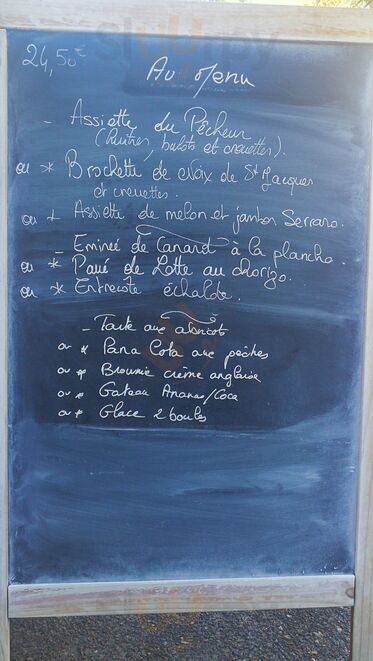 24,50€
Au Menu
- Assiette du Pêcheur
(huîtres, bulots et crevettes).
ou * Brochette de noix de St Jacques
et crevettes.
ou * Assiette de melon et jambon Serrano.
- Emincé de Canard à la plancha.
ou * Pavé de Lotte au chorizo.
ou * Entrecôte échalote.
- Tarte aux abricots
ou * Pana Cota aux pêches
ou * Brownie crème anglaise
ou * Gateau Ananas/Coco
ou * Glace 2 boules